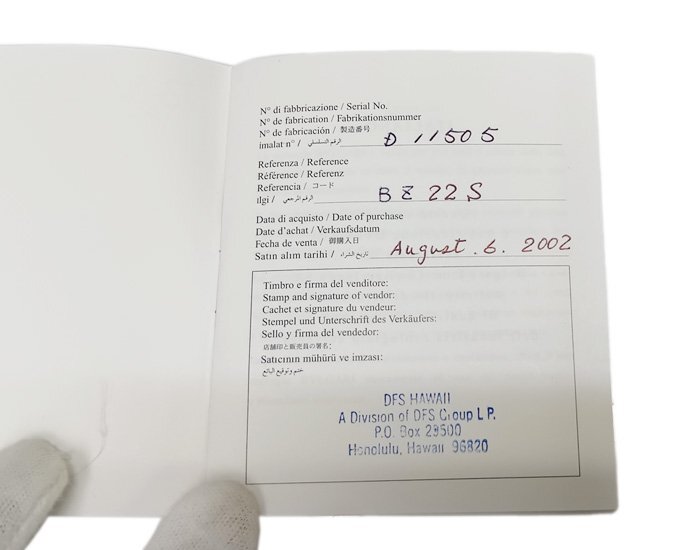 N° di fabbricazione / Serial No.
N° de fabrication / Fabrikationsnummer
N° de fabricación / 製造番号
imalat n° / الرقم التسلسلي D 11505
Referenza / Reference
Référence / Referenz
Referencia / コード
ilgi / الرقم المرجعي BZ 22 S
Data di acquisto / Date of purchase
Date d'achat / Verkaufsdatum
Fecha de venta / 御購入日
Satın alım tarihi / تاريخ الشراء August . 6 . 2002
Timbro e firma del venditore:
Stamp and signature of vendor:
Cachet et signature du vendeur:
Stempel und Unterschrift des Verkäufers:
Sello y firma del vendedor:
店舗印と販売員の署名:
Satıcının mühürü ve imzası:
ختم وتوقيع البائع
DFS HAWAII
A Division of DFS Group L P.
P.O. Box 29500
Honolulu, Hawaii 96820